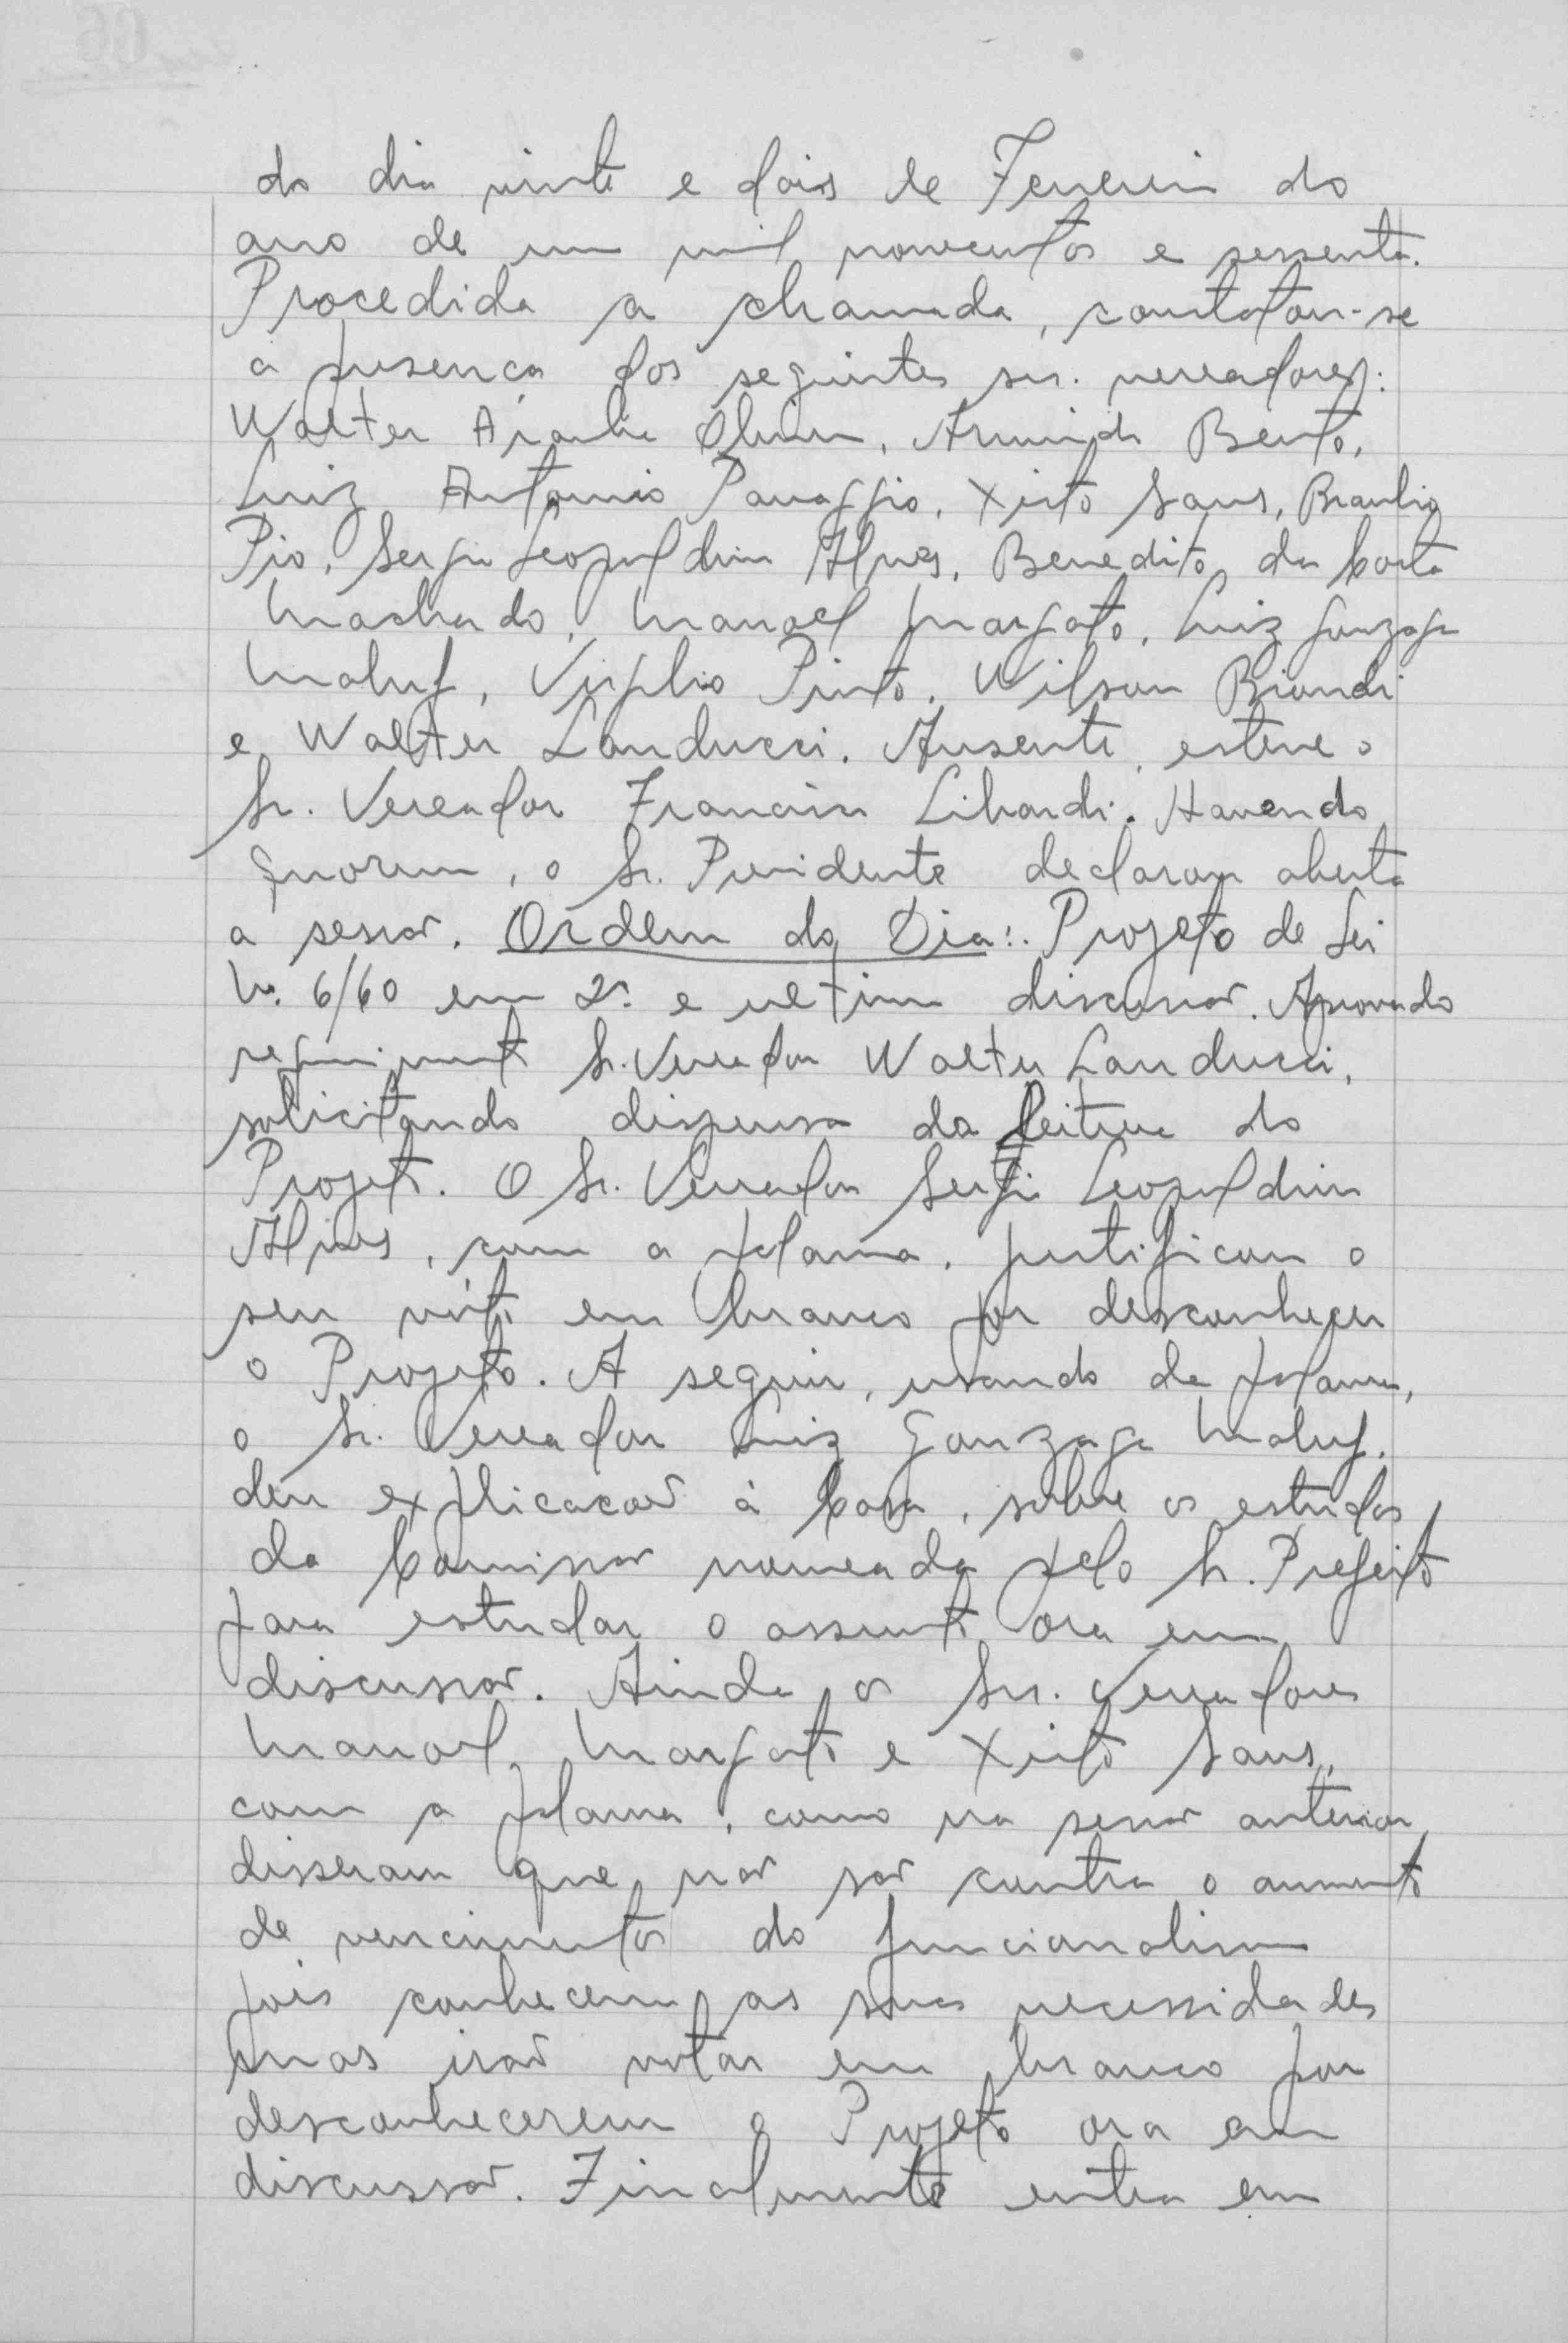 do dia vinte e dois de Fevereiro do
ano de um mil novecentos e sessenta.
Procedida a chamada, constatou-se
a presença dos seguintes srs. vereadores:
Walter Armindo Bento,
Luiz Antonio Panaggio, Xisto Sans, Braulio
Pio, Sergio Leopoldino Alves, Benedito da Costa
Machado, Manoel Margato, Luiz Gonzaga
Maluf, Virgilio Pinto, Wilson Biondi
e Walter Landucci. Ausente, esteve o
Sr. Vereador Francisco Libardi. Havendo
quorum, o Sr. Presidente declarou aberta
a sessão. Ordem do Dia:. Projeto de Lei
No. 6/60 em 2a. e ultima discussão. Aprovado
requerimento Sr. Vereador Walter Landucci,
solicitando dispensa da leitura do
Projeto. O Sr. Vereador Sergio Leopoldino
Alves, com a palavra, justificou o
seu vóto em branco por desconhecer
o Projeto. A seguir, usando da palavra,
o Sr. Vereador Luiz Gonzaga Maluf,
deu explicação à Casa, sobre os estudos
da Comissão nomeada pelo Sr. Prefeito
para estudar o assunto ora em
discussão. Ainda os Srs. Vereadores
Manoel Margato e Xisto Sans,
com a palavra, como na sessão anterior
disseram que não são contra o aumento
de vencimentos do funcionalismo
pois conhecem as suas necessidades
mas irão votar em branco por
desconhecerem o Projeto ora em
discussão. Finalmente entra em